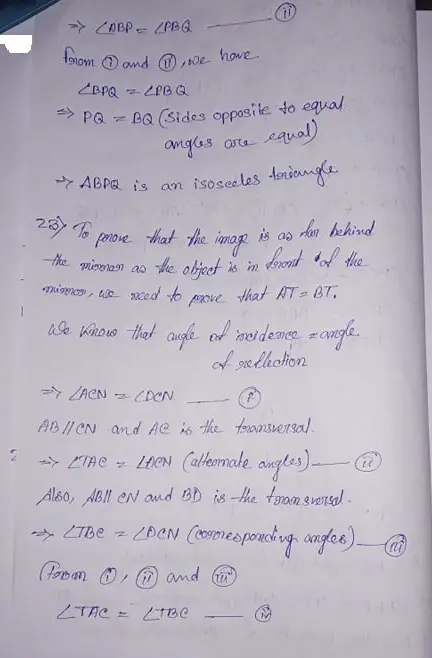 ⇒ ∠ABP = ∠PBQ —— (ii)
from (i) and (ii), we have
∠BPQ = ∠PBQ
⇒ PQ = BQ (Sides opposite to equal
angles are equal)
⇒ ABPQ is an isosceles triangle
23) To prove that the image is as far behind
the mirror as the object is in front of the
mirror, we need to prove that AT = BT.
We know that angle of incidence = angle
of reflection
⇒ ∠ACN = ∠DCN —— (i)
AB // CN and AC is the transversal.
⇒ ∠TAC = ∠ACN (alternate angles) —— (ii)
Also, AB || CN and BD is the transversal.
⇒ ∠TBC = ∠DCN (corresponding angles) —— (iii)
From (i), (ii) and (iii)
∠TAC = ∠TBC —— (iv)